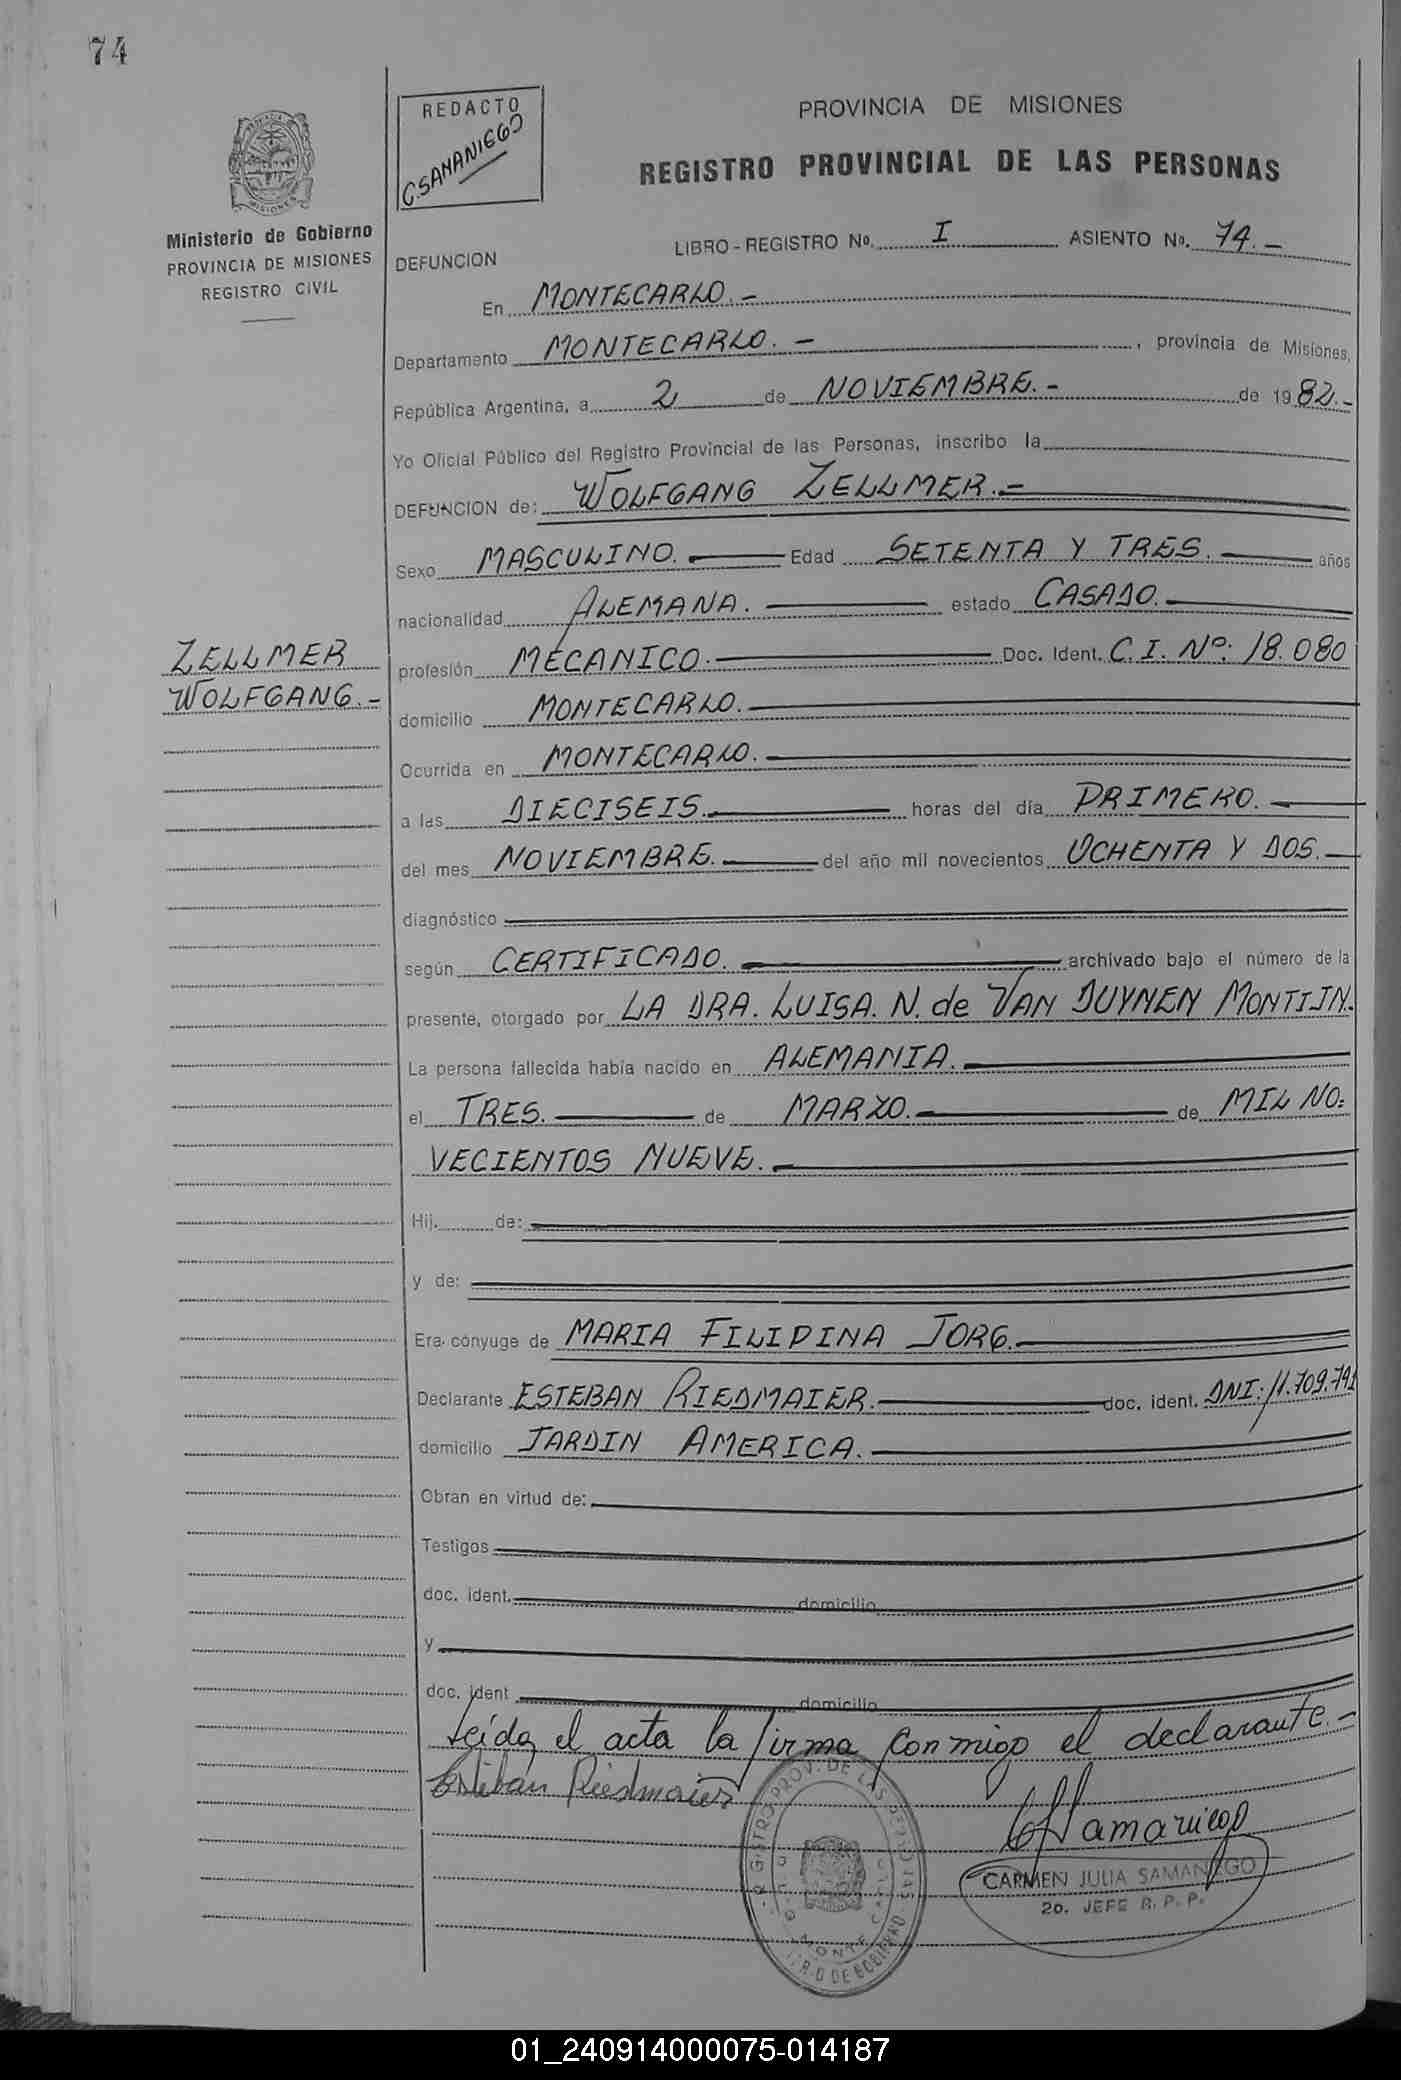 74
REDACTO
C. SAMANIEGO
PROVINCIA DE MISIONES
REGISTRO PROVINCIAL DE LAS PERSONAS
Ministerio de Gobierno
PROVINCIA DE MISIONES
REGISTRO CIVIL
LIBRO - REGISTRO No. I ASIENTO No. 74.-
DEFUNCION
En MONTECARLO.-
Departamento MONTECARLO.-, provincia de Misiones,
República Argentina, a 2 de NOVIEMBRE.- de 1982.-
Yo Oficial Público del Registro Provincial de las Personas, inscribo la
DEFUNCION de: WOLFGANG ZELLMER.-
Sexo MASCULINO. Edad SETENTA Y TRES. años
nacionalidad ALEMANA. estado CASADO.
ZELLMER
WOLFGANG.-
profesión MECANICO. Doc. Ident. C.I. Nº: 18.080
domicilio MONTECARLO.
Ocurrida en MONTECARLO.
a las DIECISEIS. horas del día PRIMERO.
del mes NOVIEMBRE. del año mil novecientos OCHENTA Y DOS.
diagnóstico
según CERTIFICADO. archivado bajo el número de la
presente, otorgado por LA DRA. LUISA. N. de VAN DUYNEN MONTIJN.
La persona fallecida había nacido en ALEMANIA.
el TRES. de MARZO. de MIL NO=
VECIENTOS NUEVE.
Hij. de:
y de:
Era cónyuge de MARIA FILIPINA JORG.
Declarante ESTEBAN RIEDMAIER. doc. ident. DNI: 11.709.791
domicilio JARDIN AMERICA.
Obran en virtud de:
Testigos
doc. ident. domicilio
y
doc. ident domicilio
Leída el acta la firma conmigo el declarante.-
Esteban Riedmaier
CJSamaniego
REGISTRO PROV. DE LAS PERSONAS
MONTE CARLO
CARMEN JULIA SAMANIEGO
2o. JEFE R. P. P.
01_240914000075-014187